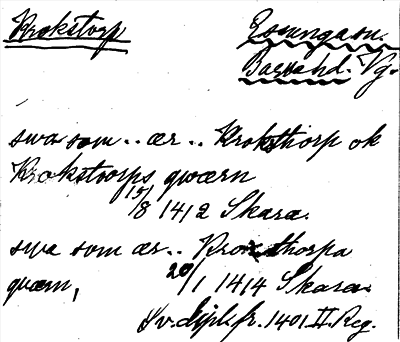 Krokstorp Essungasn.
Barnehd. Vg.
swa som .. ær .. Kroksthorp ok
Krokstorps qwærn
15/8 1412 Skara.
swa som ær .. Kroxsthorpa
qwærn, 20/1 1414 Skara.
Sv. dipl. fr. 1401 II. Reg.